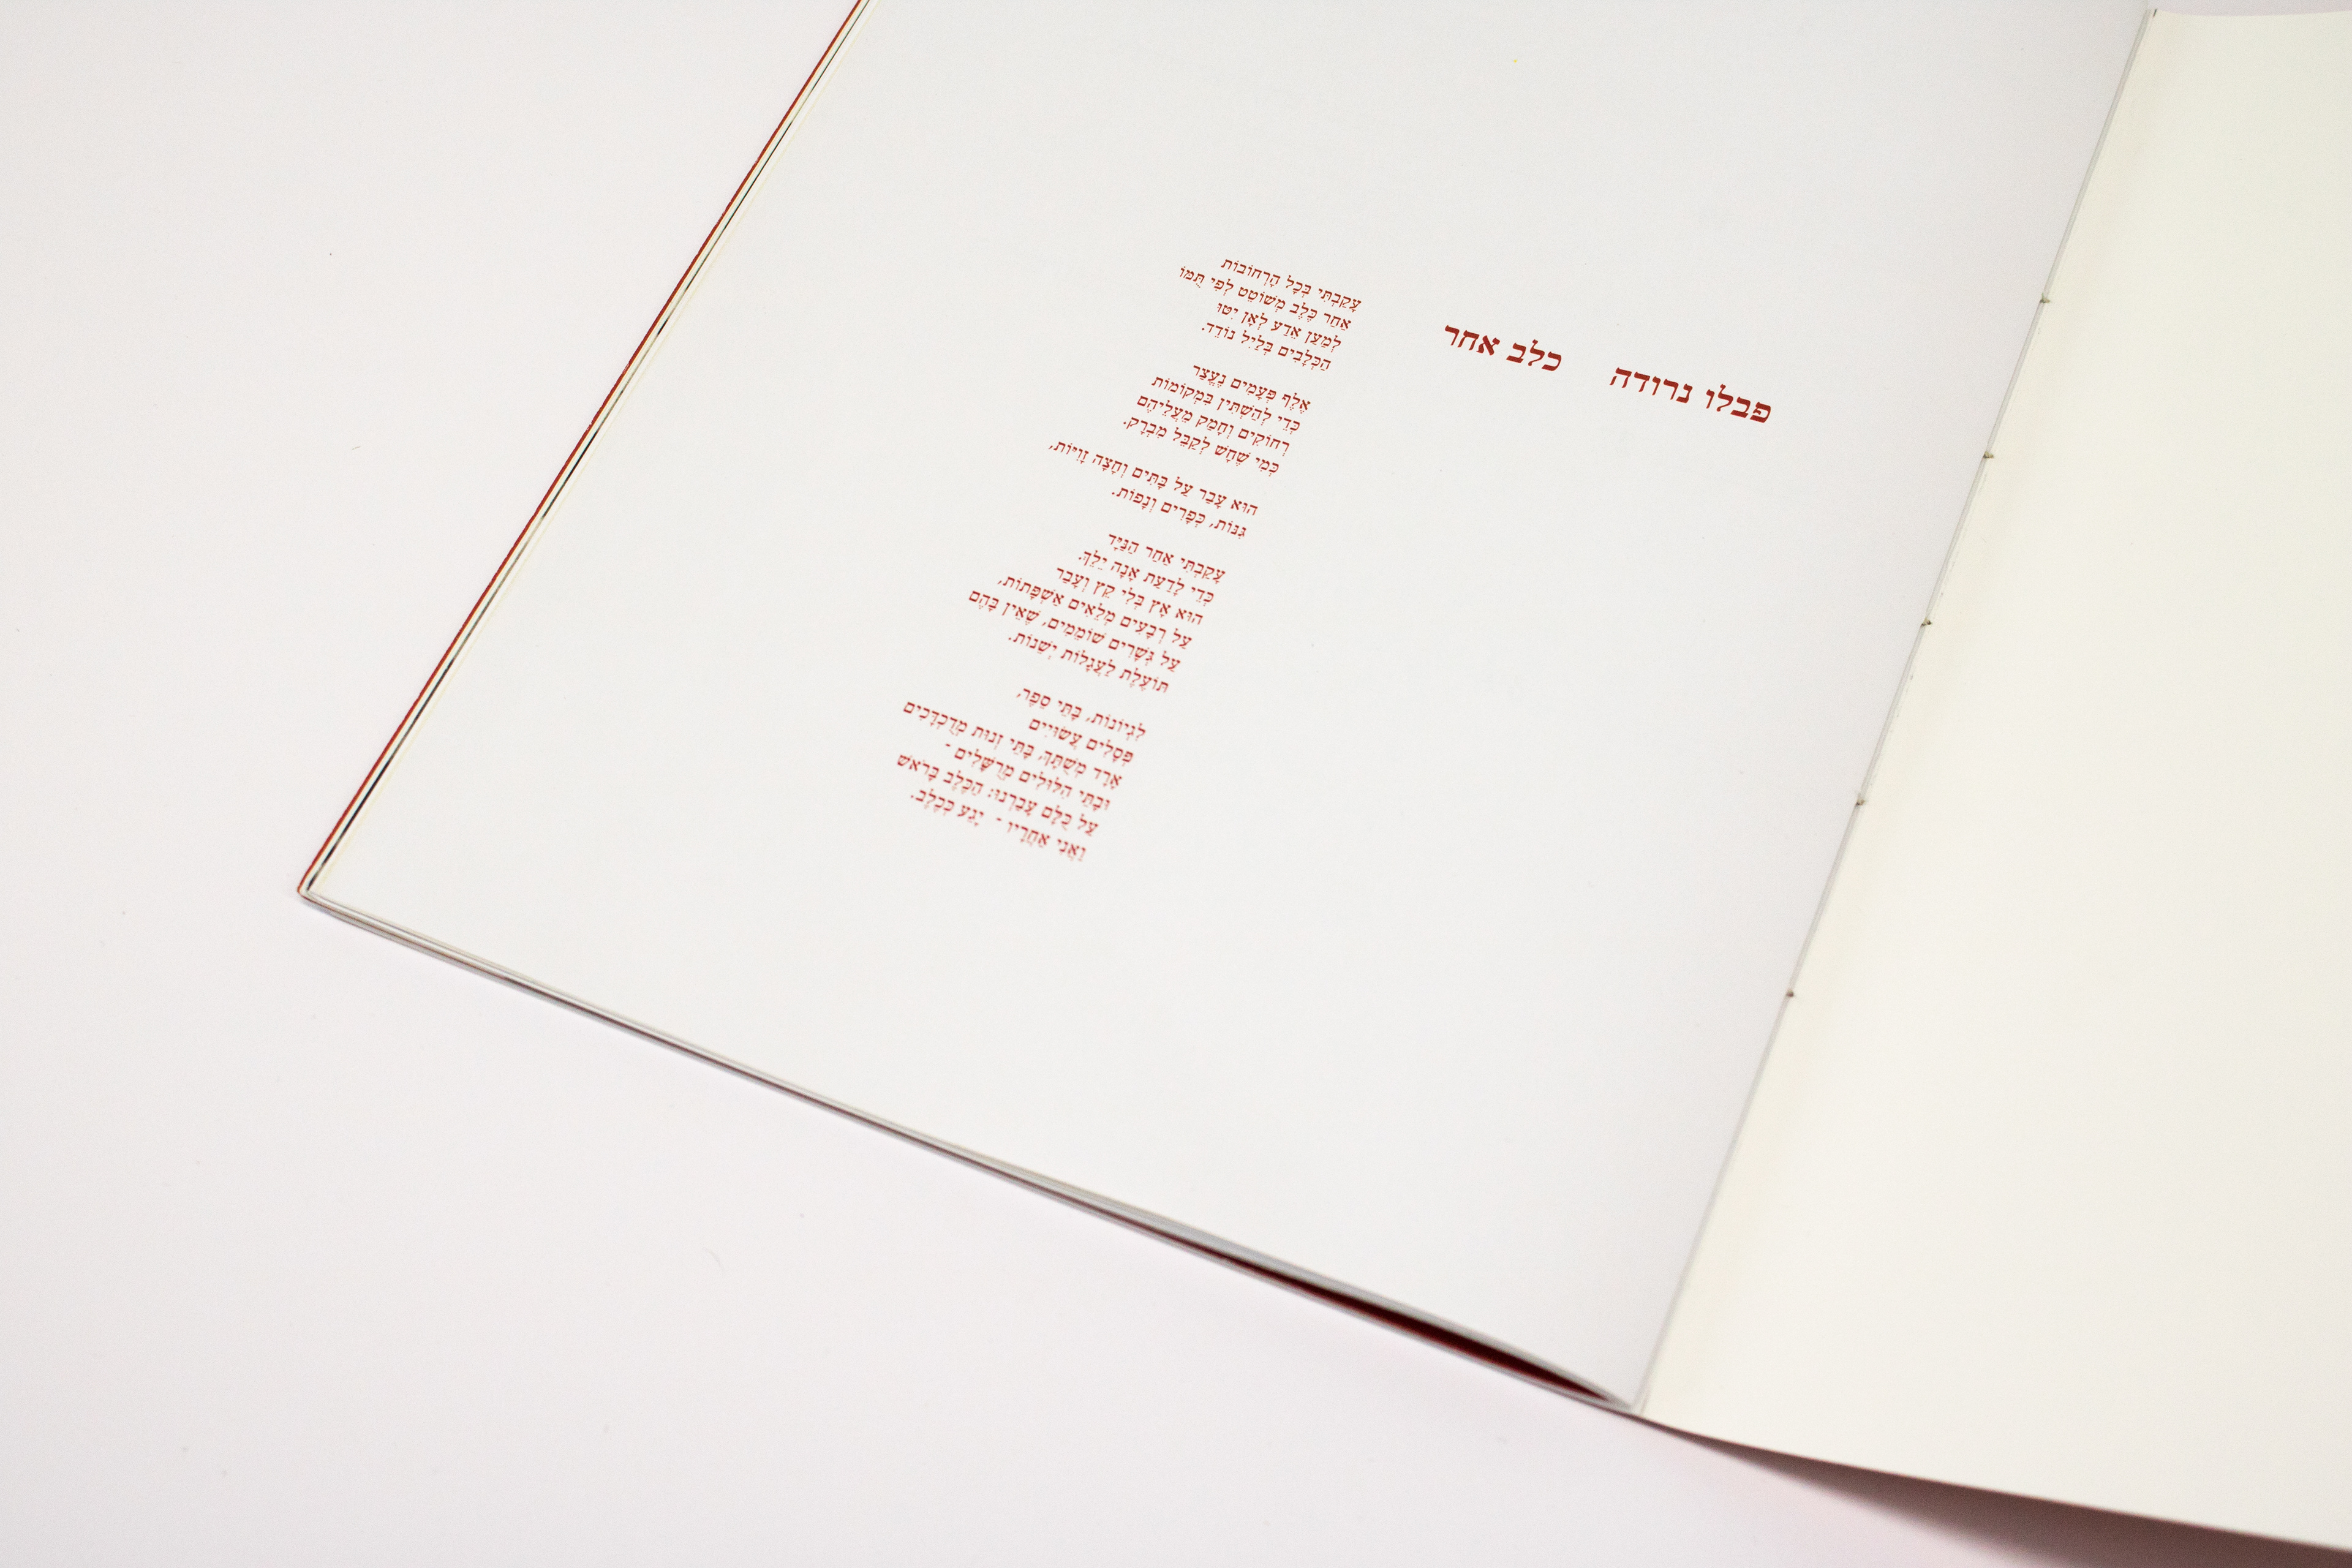 פבלו נרודה   כלב אחר
עָקַבְתִּי בְּכָל הָרְחוֹבוֹת
אַחַר כֶּלֶב מְשׁוֹטֵט לְפִי תֻּמּוֹ
לְמַעַן אֵדַע לְאָן יִטּוּ
הַכְּלָבִים בְּלַיִל נוֹדֵד.
אֶלֶף פְּעָמִים נֶעֱצַר
כְּדֵי לְהַשְׁתִּין בִּמְקוֹמוֹת
רְחוֹקִים וְחָמַק מֵעֲלֵיהֶם
כְּמִי שֶׁחָשׁ לְקַבֵּל מִבְרָק.
הוּא עָבַר עַל בָּתִּים וְחָצָה זָוִיּוֹת,
גִּנּוֹת, כְּפָרִים וְנָפוֹת.
עָקַבְתִּי אַחַר הַנַּיָּד
כְּדֵי לָדַעַת אָנָה יֵלֵךְ.
הוּא אָץ בְּלִי קֵץ וְעָבַר
עַל רְבָעִים מְלֵאִים אַשְׁפָּתוֹת,
עַל גְּשָׁרִים שׁוֹמֵמִים, שֶׁאֵין בָּהֶם
תּוֹעֶלֶת לַעֲגָלוֹת יְשֵׁנוֹת.
לִגְיוֹנוֹת, בָּתֵּי סֵפֶר,
פְּסָלִים עֲשׂוּיִים
אָרָד מְשֻׁתָּךְ, בָּתֵּי זְנוּת מְדֻכְדָּכִים
וּבָתֵּי הִלּוּלִים מְרֻשָּׁלִים -
עַל כֻּלָּם עָבַרְנוּ: הַכֶּלֶב בָּרֹאשׁ
וַאֲנִי אַחֲרָיו - יָגֵעַ כְּכֶלֶב.